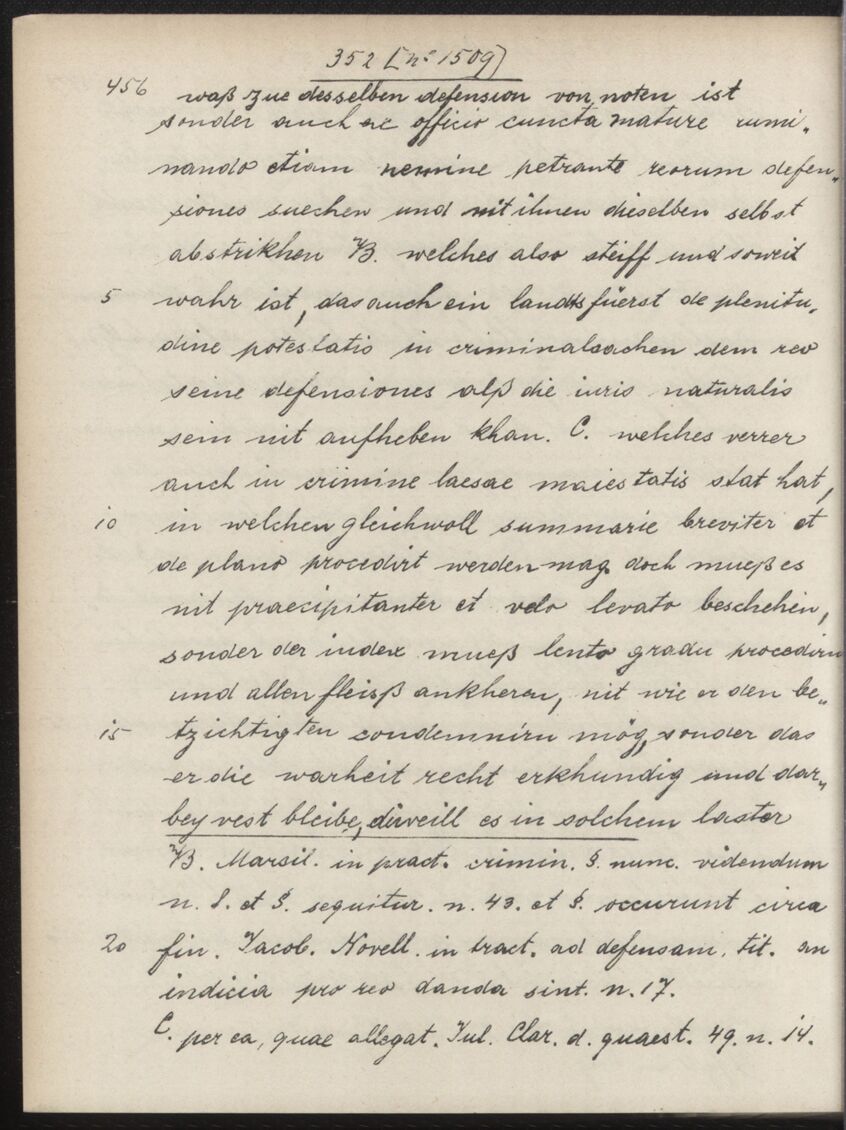 352 [no 1509]
456 waß zue desselben defension von noten ist
sonder auch ex officio cuncta mature rumi„
nando etiam nemine petrante reorum defen„
siones suechen und mit ihnen dieselben selbst
abstrikhen B. welches also steiff und soweit
5 wahr ist, das auch ein landtsfüerst de plenitu„
dine potestatis in criminalsachen dem reo
seine defensiones alß die iuris naturalis
sein nit aufheben khan. C. welches verrer
auch in crimine laesae maiestatis stat hat,
10 in welchen gleichwoll summarie breviter et
de plano procedirt werden mag doch mueß es
nit praecipitanter et velo levato beschehen,
sonder der iudex mueß lento gradu procedirn
und allen fleisß ankheren, nit wie er den be„
15 tzichtigten condemnirn mög, sonder das
er die warheit recht erkhundig und dar„
bey vest bleibe, diweill es in solchem laster
B. Marsil. in pract. crimin. §. nunc. videndum
n. 8. et §. sequitur. n. 43. et §. occurunt circa
20 fin. Jacob. Novell. in tract. ad defensam. tit. an
indicia pro reo danda sint. n. 17.
C. per ea, quae allegat. Jul. Clar. d. quaest. 49. n. 14.